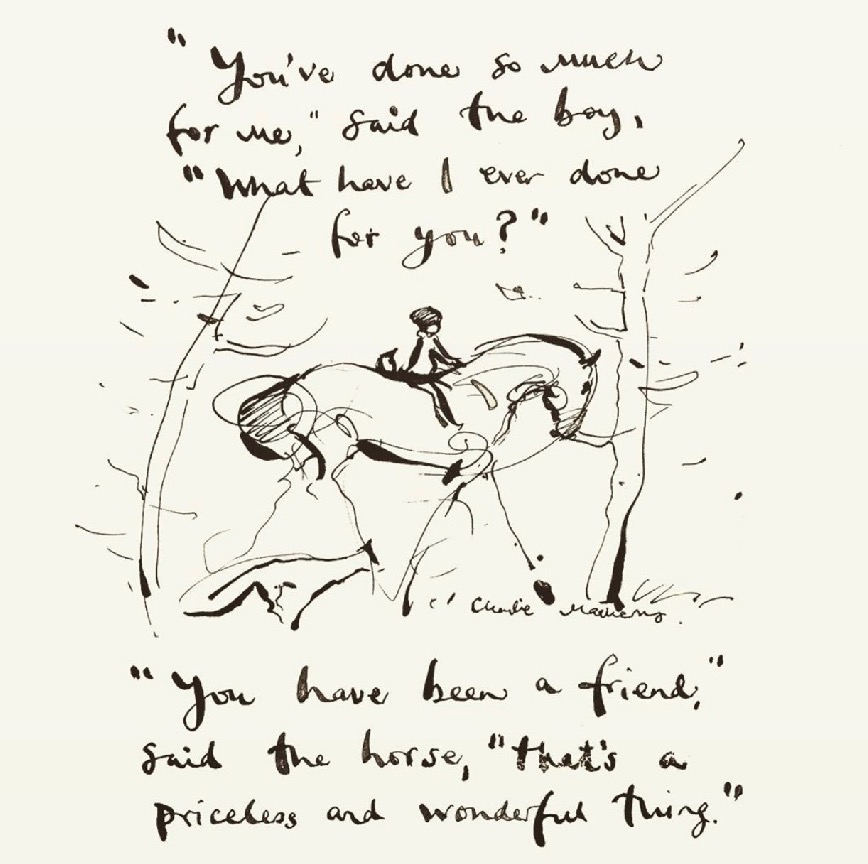 "You've done so much
for me," said the boy,
"What have I ever done
for you?"
Charlie Mackesy.
"You have been a friend,"
said the horse, "that's a
priceless and wonderful thing."